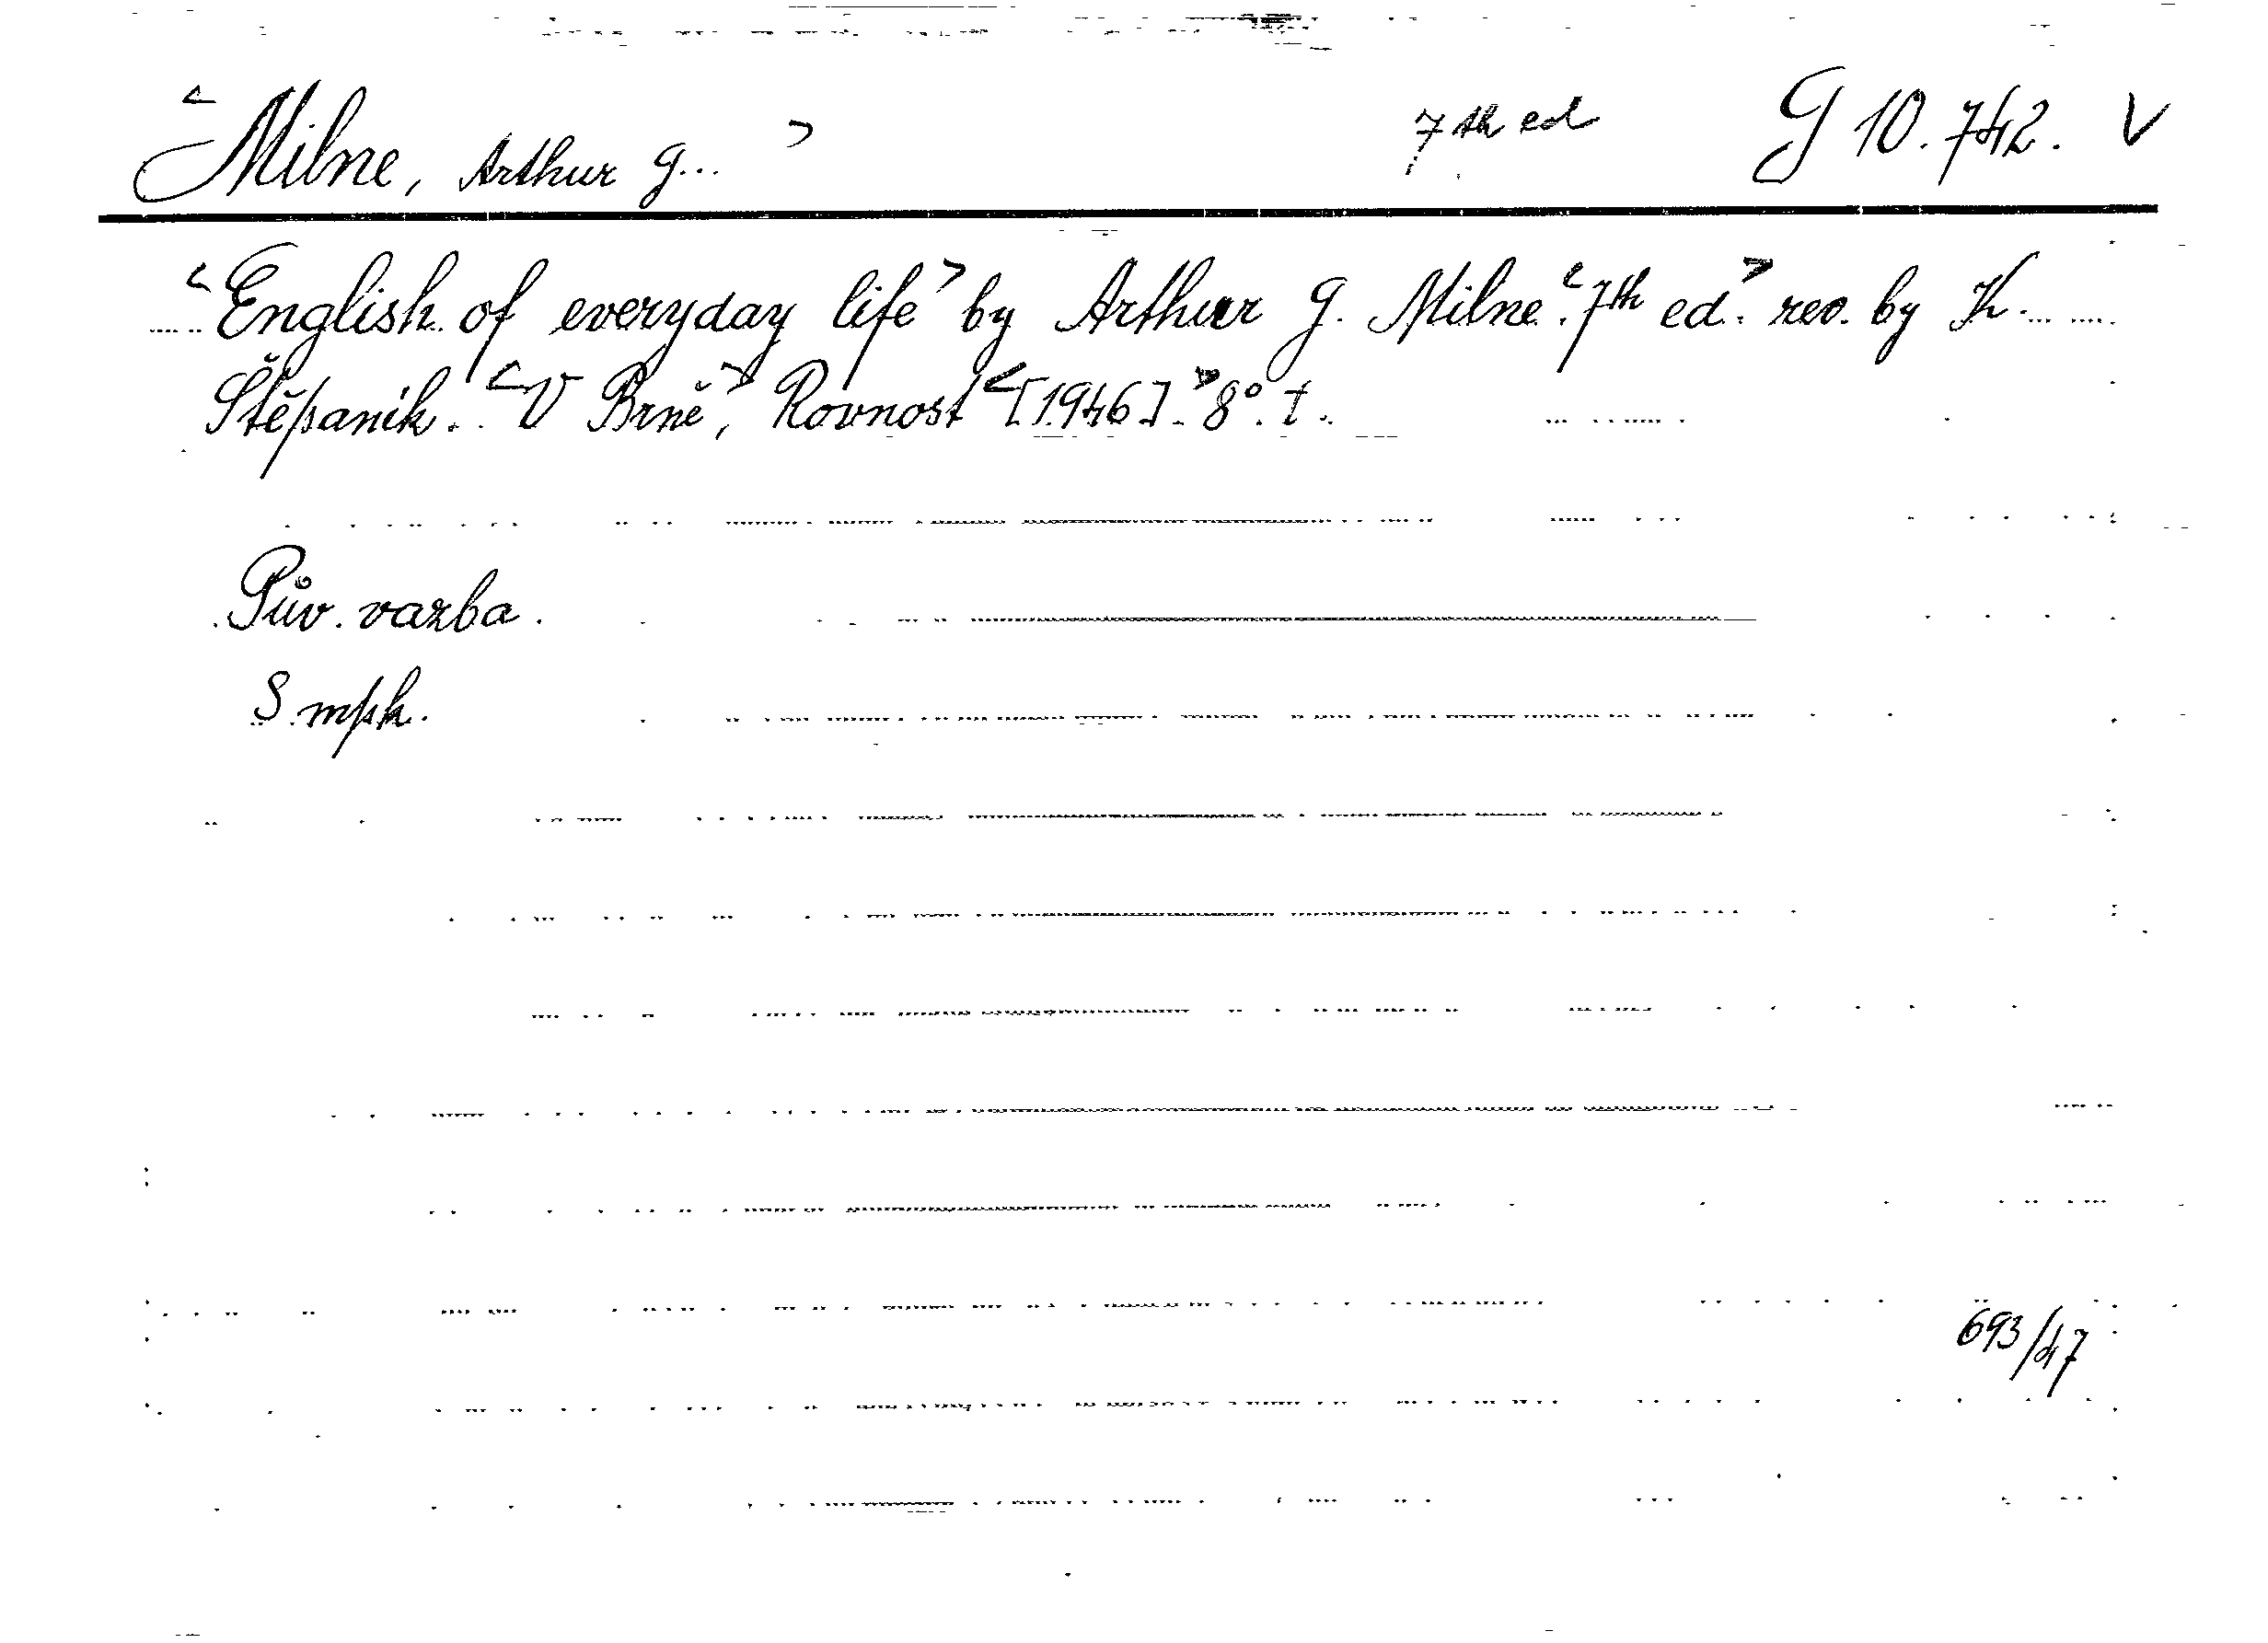 <Milne, Arthur G... > 7th ed G 10.742. V
<English of everyday life> by Arthur G. Milne. <7th ed.> rev. by K.
Štěpaník. <V Brně,> Rovnost <[1946].> 8°. t.
Pův. vazba.
S mph.
693/47